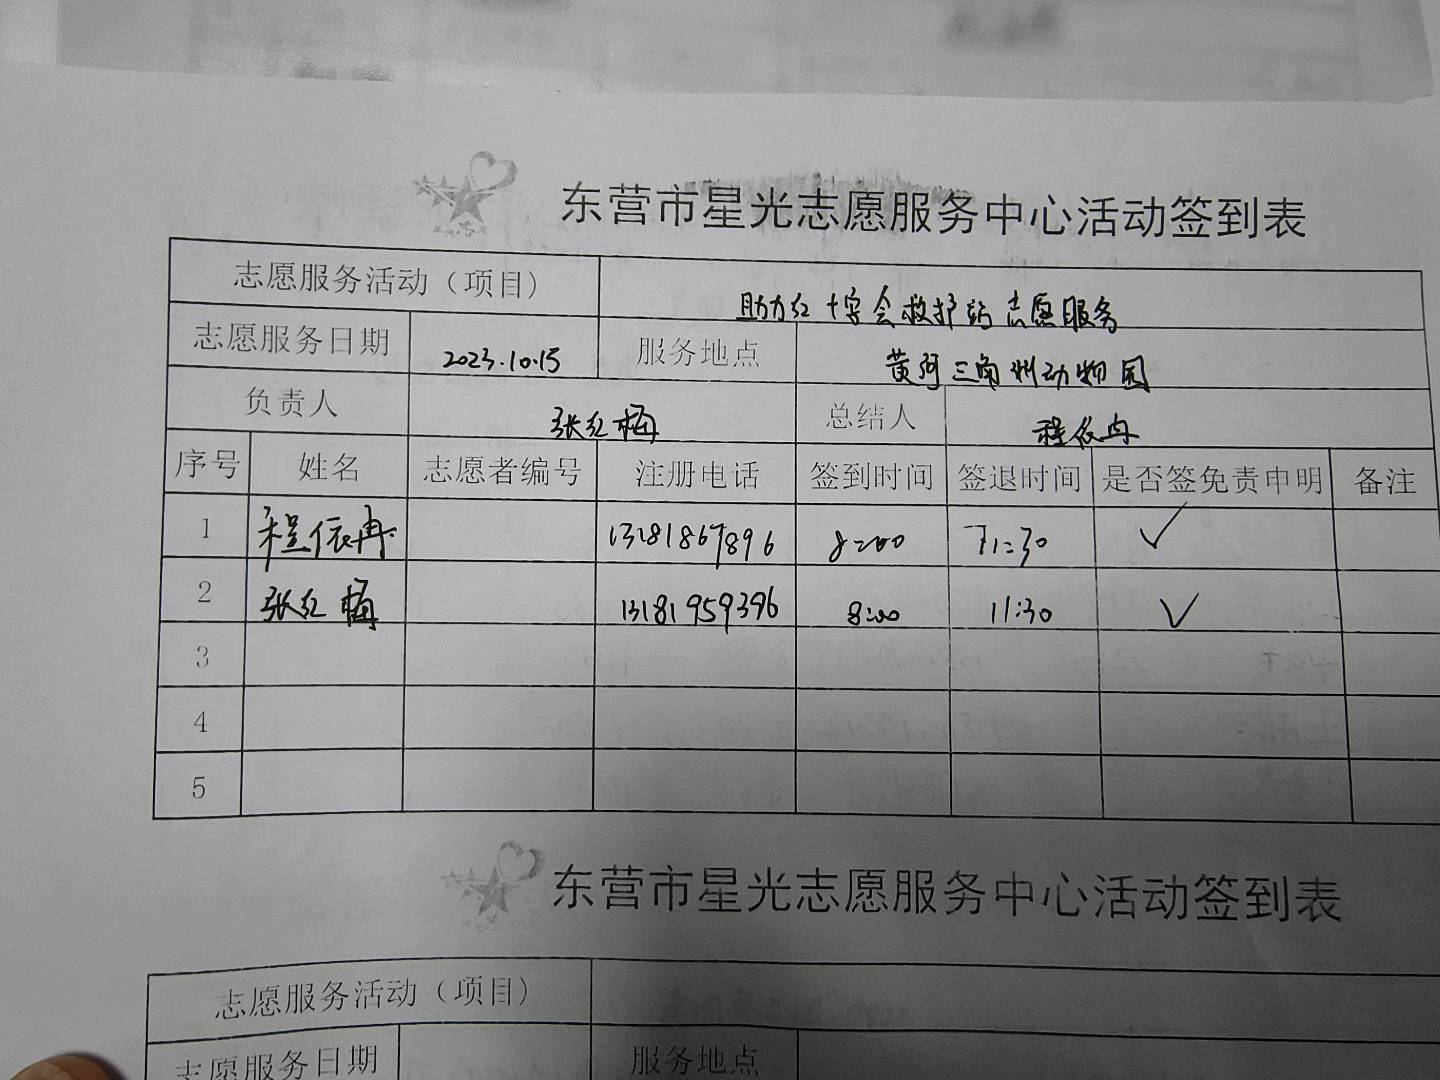 东营市星光志愿服务中心活动签到表
志愿服务活动（项目） 助力红十字会救护站志愿服务
志愿服务日期 2023.10.15 服务地点 黄河三角州动物园
负责人 张红梅 总结人 程依冉
序号 姓名 志愿者编号 注册电话 签到时间 签退时间 是否签免责申明 备注
1 程依冉 13181867896 8:00 11:30 ✓
2 张红梅 13181959396 8:00 11:30 ✓
3
4
5
东营市星光志愿服务中心活动签到表
志愿服务活动（项目）
志愿服务日期 服务地点